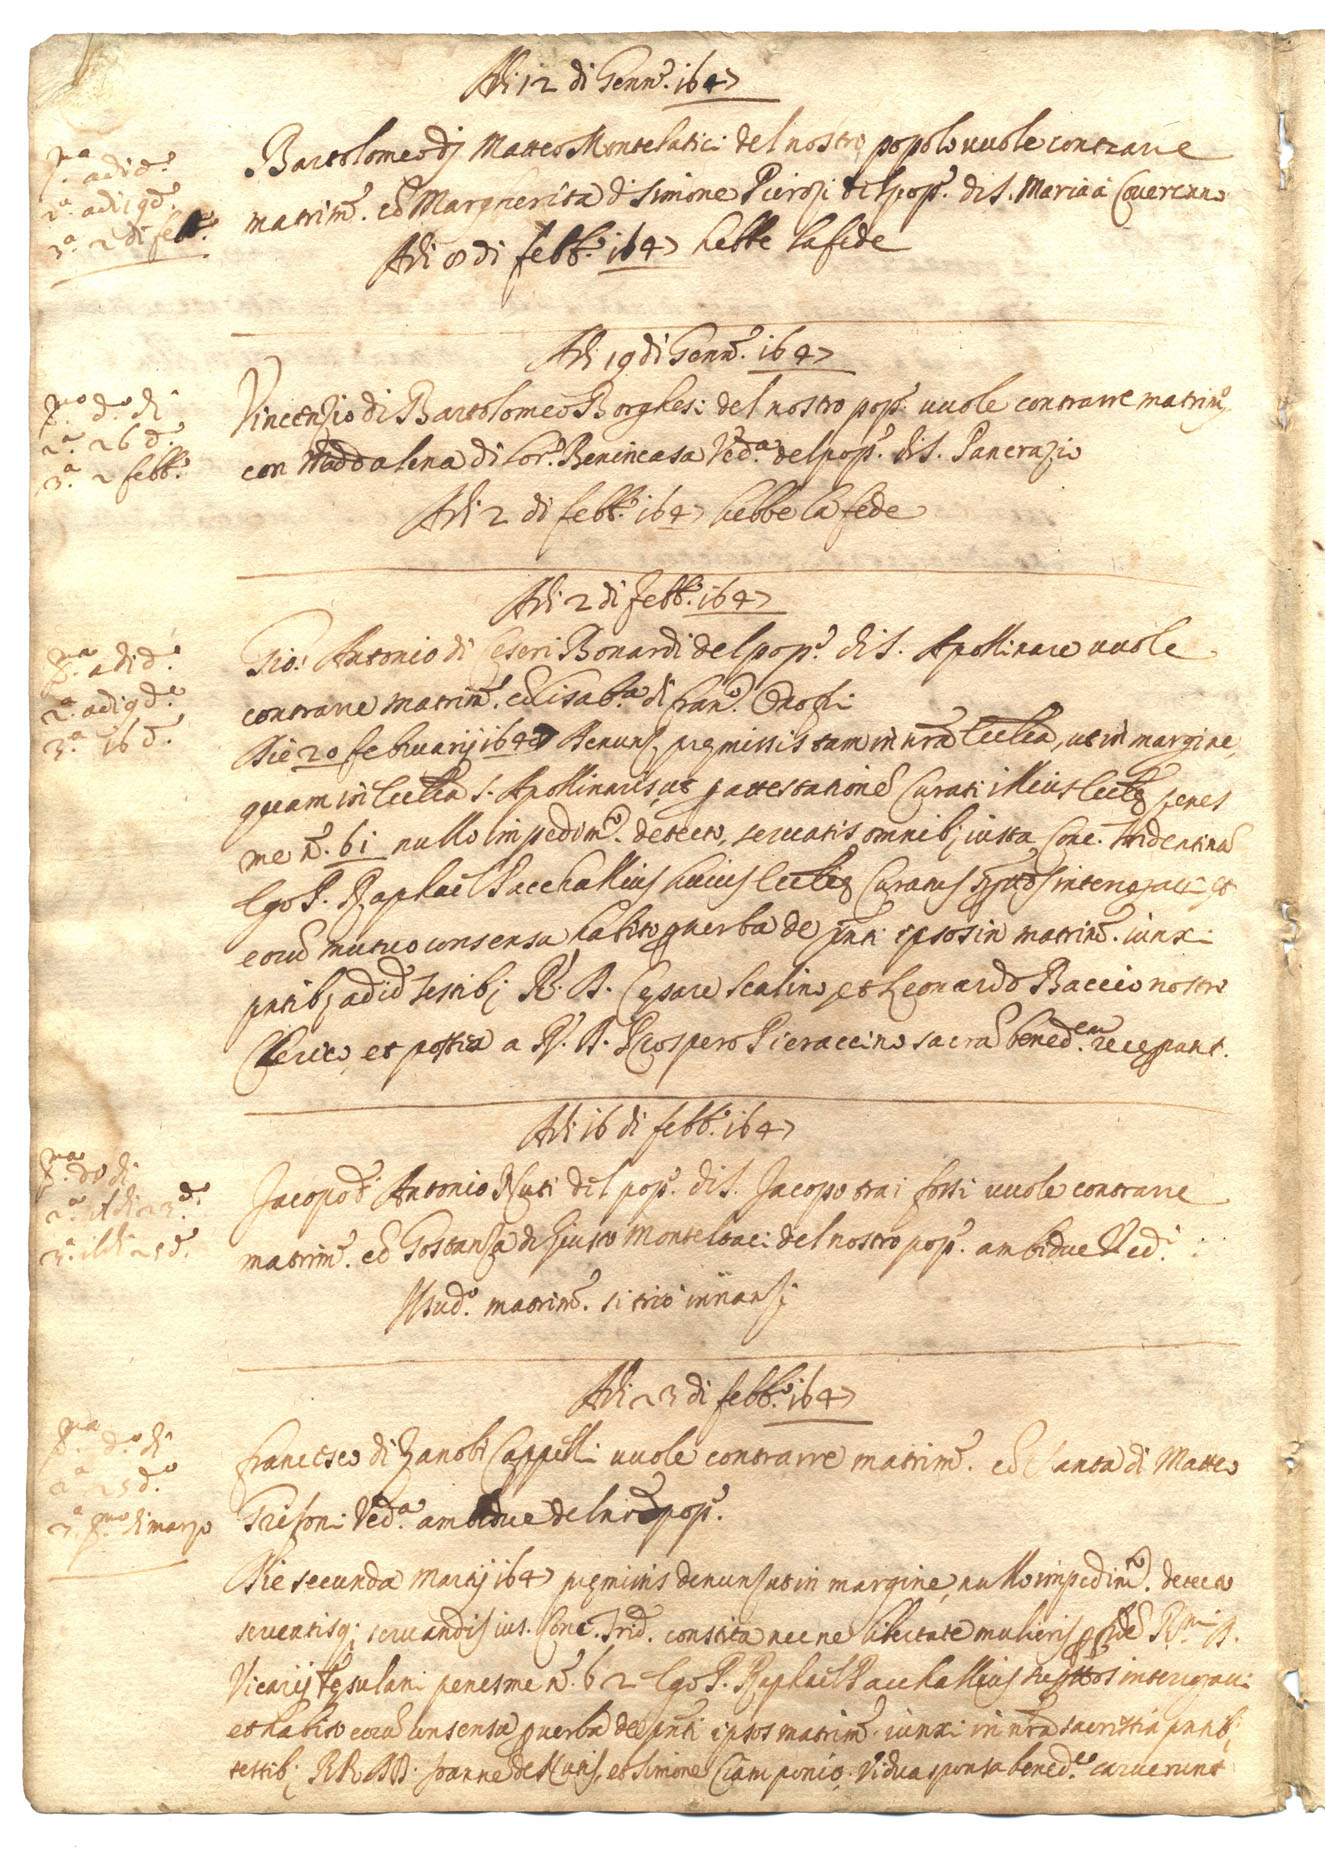 Adì 12 di Genn.o 1647
p.a adi d.o
2.a adi 19 d.o
3.a 2 di febb.o
Bartolomeo dj Matteo Montelatici del nostro popolo vuole contrarre
matrim.o cō Margherita di Simone Pierozi del pop.o di S. Maria a Coverciano
Adì 8 di febb.o 1647 hebbe la fede
Adì 19 di Genn.o 1647
p.mo d.o dì
2.a 26 d.o
3.a 2 febb.o
Vincenzio di Bartolomeo Borghesi del nostro pop.o vuole contrarre matrim.o
con Maddalena di Lor.o Benincasa Ved.a del pop.o di S. Pancrazio
Adì 2 di febb.o 1647 hebbe la fede
Adì 2 di febb.o 1647
p.a adi d.o
2.a adi 9 d.o
3.a 16 d.o
Gio: Antonio di Ceseri Bonardi del pop.o di S. Apollinare vuole
contrarre matrim.o cō Lisab.a di Fran.o Onofri
Die 20 februarij 1647 Denunz. premissis tam in nrā Ecclīa, ut in margine,
quam in Ecclīa S. Apollinaris, ut p attestationē Curati illius Ecclīę penes
me n.o 61 nullo impedim.o detecto, servatis omnib; iuxta Conc. Tridentinū
Ego P. Raphael Pacchallius huius Ecclīę Curatus interrogavi et
eorū mutuo consensu habito p verba de pnti ipsos in matrim.o iunxi
pntib; ad id testib; R. D. Cesare Scalino, et Leonardo Baccio nostro
Clerico, et postea a R. D. Prospero Pieraccino sacrā bened.em receperunt.
Adì 16 di febb.o 1647
p.ma d.o dì
2.a il dì 23 d.o
3.a il dì 25 d.o
Jacopo d' Antonio Nuti del pop.o di S. Jacopo tra i fossi vuole contrarre
matrim.o cō Gostanza di Giusto Montelatici del nostro pop.o ambidue Ved.i
Il sud.o matrim.o si tirò innanzi
Adì 23 di febb.o 1647
p.a d.o dì
2.a 25 d.o
3.a p.mo di marzo
Francesco di Zanobi Cappelli vuole contrarre matrim.o cō Santa di Matteo
Grifoni Ved.a ambidue del nrō pop.o
Die secunda Martij 1647 premissis denunz. ut in margine, nullo impedim.o detecto
servatisq; servandis ius. Conc. Trid. constita necne libertate mulieris R.mi D.
Vicarij Fęsulani penes me n.o 62 Ego P. Raphael Pacchallius interrogavi
et habito eorū consensu p verba de pnti ipsos matrim.o iunxi in nrā sacristia pntib;
testib; RR. DD. Joanne de Nutis, et Simone Ciamponio. Vidua sponsa bened.e caruerunt